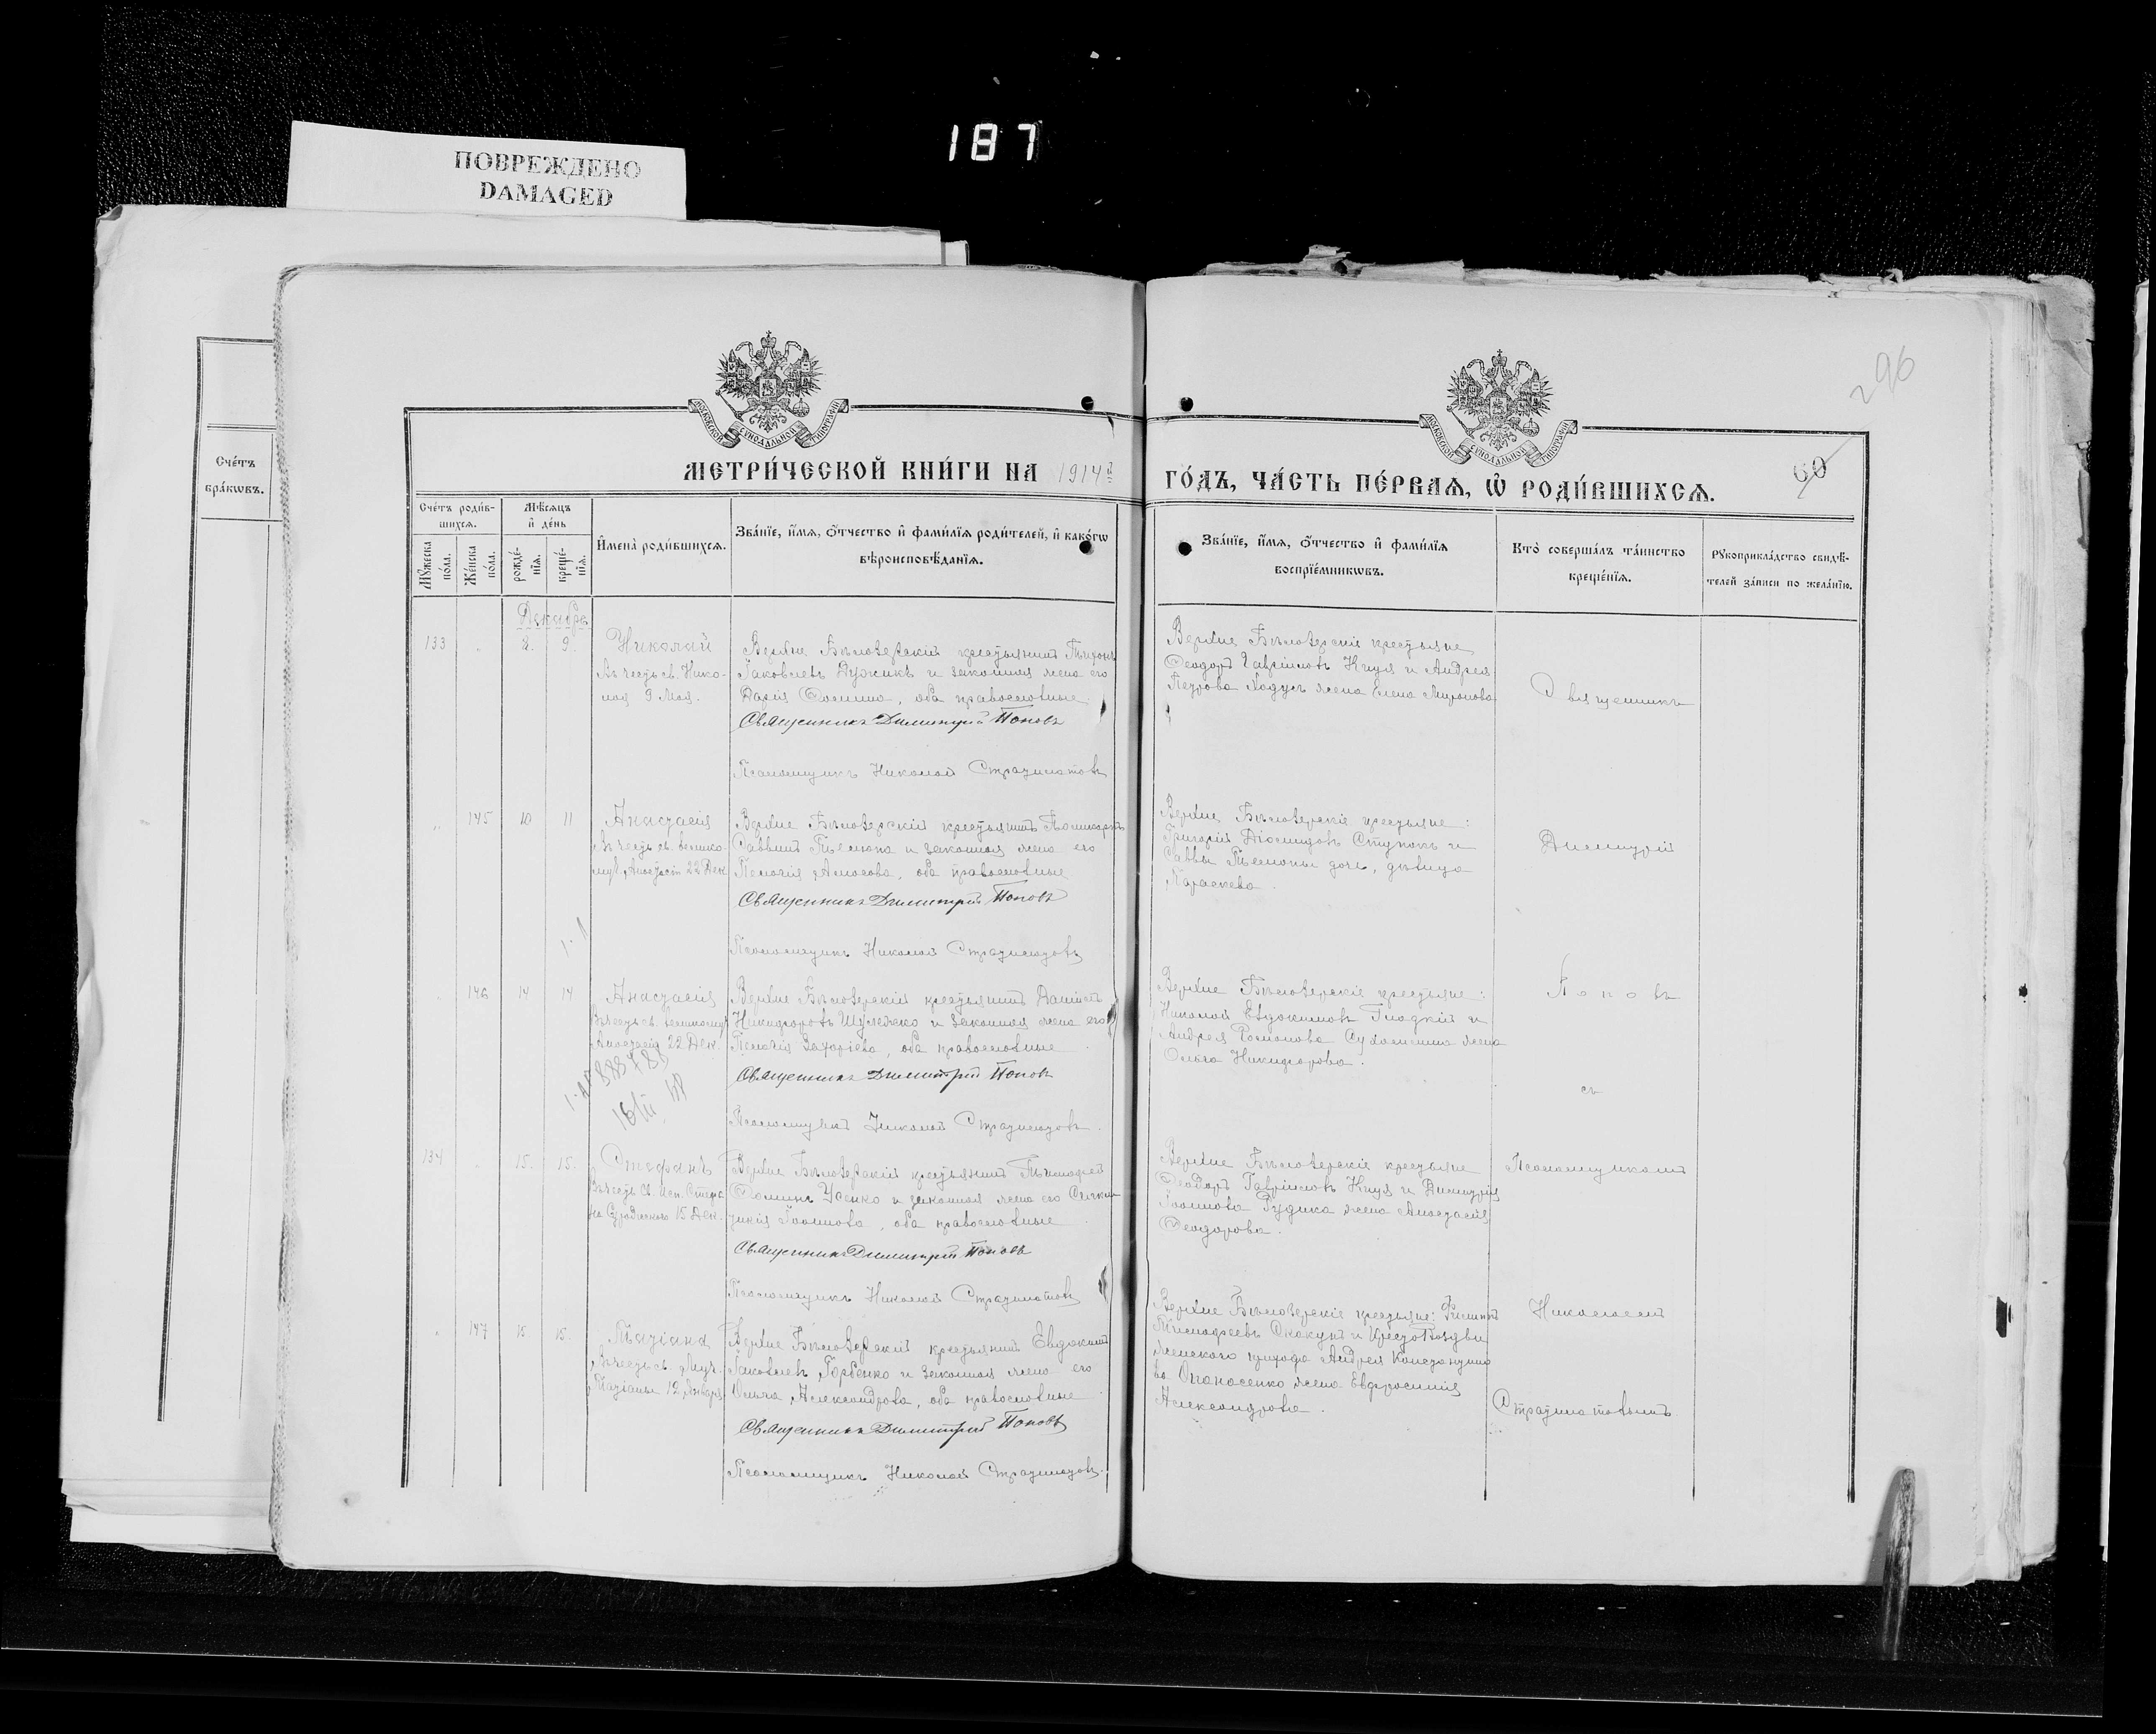 187
ПОВРЕЖДЕНО
DAMAGED
296
60
МОСКОВСКОЙ СУНОДАЛЬНОЙ ТИПОГРАФІИ
МОСКОВСКОЙ СУНОДАЛЬНОЙ ТИПОГРАФІИ
МЕТРИ́ЧЕСКОЙ КНИ́ГИ НА 1914й
ГО́ДЪ, ЧА́СТЬ ПЕ́РВАѦ, Ѡ҆ РОДИ́ВШИХСѦ.
Сче́тъ
бра́кѡвъ.
Сче́тъ роди́в-
шихсѧ.
Мѣ́сѧцъ
и҆ де́нь
Мꙋ́жеска
по́ла.
Же́нска
по́ла.
рожде́-
нїѧ.
креще́-
нїѧ.
И҆мена̀ роди́вшихсѧ.
Зва́нїе, и҆́мѧ, ѻ҆́тчество и҆ фами́лїѧ роди́телей, и҆ како́гѡ
вѣроисповѣ́данїѧ.
Зва́нїе, и҆́мѧ, ѻ҆́тчество и҆ фами́лїѧ
воспрїе́мникѡвъ.
Кто̀ соверша́лъ та́инство
креще́нїѧ.
Рꙋкоприкла́дство свидѣ́-
телей за́писи по жела́нїю.
Декабрь
133 " 2. 9. Николай
Въ честь св. Нико-
лая 9 Мая.
Верхне Бѣлозерскій крестьянинъ Тихонъ
Яковлевъ Дужикъ и законная жена его
Дарія Ѳомина, оба православные.
Священникъ Димитрій Поповъ
Псаломщикъ Николай Стратилатовъ
Верхне Бѣлозерскіе крестьяне
Ѳеодоръ Гавріиловъ Куця и Андрея
Петрова жена Елена Миронова
Священникъ
" 145 10 11 Анастасія
Въ честь св. велико-
муч. Анастасіи 22 Дек.
Верхне Бѣлозерскій крестьянинъ Поликарпъ
Саввинъ и законная жена его
Пелагія Амосова, оба православные
Священникъ Димитрій Поповъ
Псаломщикъ Николай Стратилатовъ
Верхне Бѣлозерскіе крестьяне:
Григорій Діомидовъ Ступакъ и
Саввы дочь, дѣвица
Параскева.
Димитрій
" 146 14 14 Анастасія
Въ честь св. великомуч.
Анастасіи 22 Дек.
Верхне Бѣлозерскій крестьянинъ Даніилъ
Никифоровъ Шулежко и законная жена его
Пелагія Захаріева, оба православные
Священникъ Димитрій Поповъ
16/III 48
Псаломщикъ Николай Стратилатовъ.
Верхне Бѣлозерскіе крестьяне:
Николай Евдокимовъ Гладкій и
Андрея Романова жена
Ольга Никифорова.
Поповъ
съ
134 " 15. 15. Стефанъ
Въ честь св. исп. Стефа-
на Сурожскаго 15 Дек.
Верхне Бѣлозерскій крестьянинъ Тимофей
Ѳоминъ Усенко и законная жена его
Іоаннова, оба православные
Священникъ Димитрій Поповъ
Псаломщикъ Николай Стратилатовъ
Верхне Бѣлозерскіе крестьяне
Ѳеодоръ Гавріиловъ Куця и Димитрія
Іоаннова Рудика жена Анастасія
Ѳеодорова.
Псаломщикомъ
" 147 15. 15. Татіана
Въ честь св. муч.
Татіаны 12 Января
Верхне Бѣлозерскій крестьянинъ Евдокимъ
Яковлевъ Горбенко и законная жена его
Ольга Александрова, оба православные
Священникъ Димитрій Поповъ
Псаломщикъ Николай Стратилатовъ.
Верхне Бѣлозерскіе крестьяне: Филиппъ
Тимофеевъ Скакунъ и Крестовоздви-
женскаго прихода Андрея Константино-
ва Опанасенко жена Евфросинія
Александрова.
Николаемъ
Стратилатовымъ.